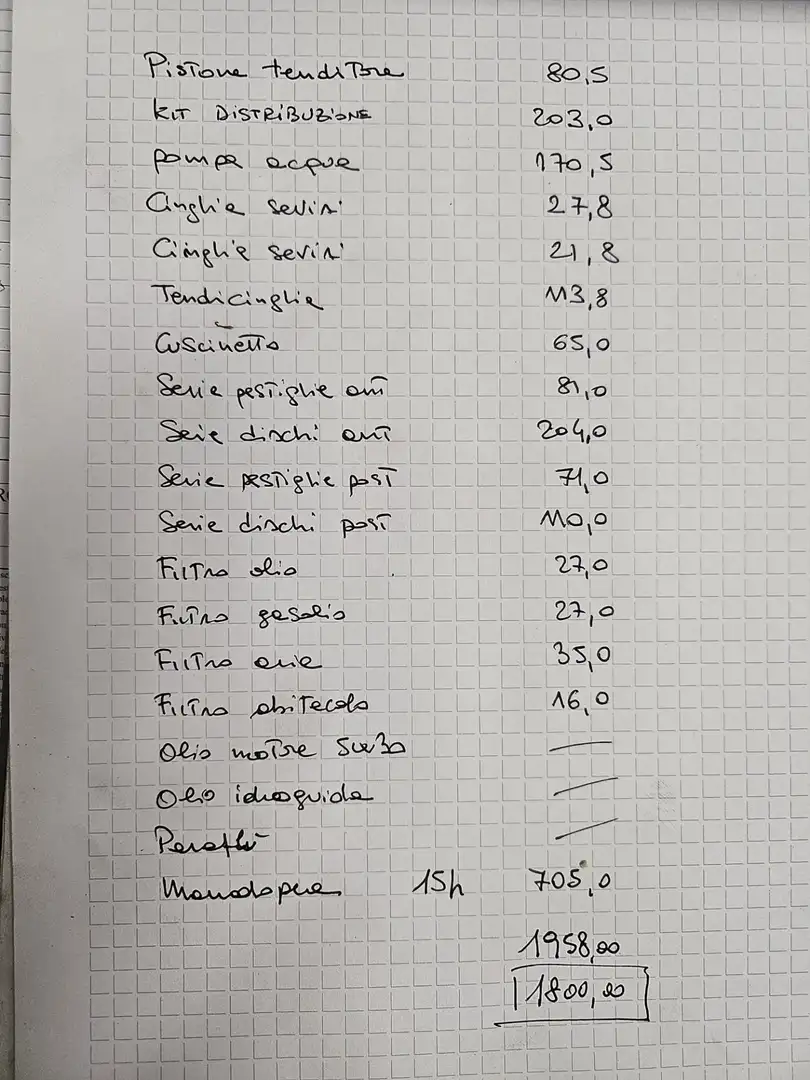 Pistone tenditore 80,5
KIT DISTRIBUZIONE 203,0
pompa acqua 170,5
Cinghia servizi 27,8
Cinghia servizi 21,8
Tendicinghia 113,8
Cuscinetto 65,0
Serie pastiglie ant 81,0
Serie dischi ant 204,0
Serie pastiglie post 71,0
Serie dischi post 110,0
Filtro olio 27,0
Filtro gasolio 27,0
Filtro aria 35,0
Filtro abitacolo 16,0
Olio motore 5w30 —
Olio idroguida —
Paraflu —
Manodopera 15h 705,0
1958,00
1800,00